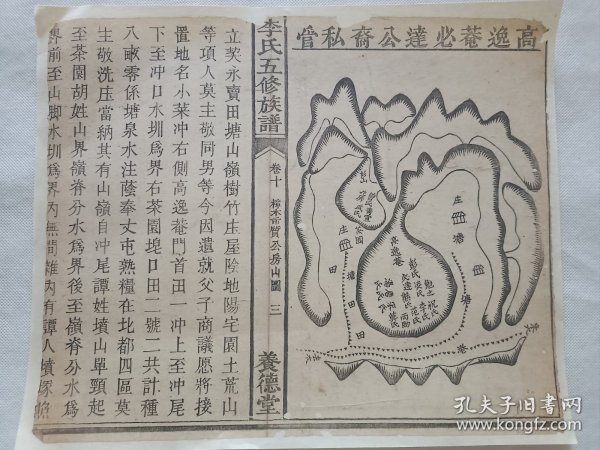 高逸菴必達公裔私管
庄
塘
田
庄
塘
田
塘
田
田
高逸菴
港
李氏五修族譜
卷十
山圖
三
養德堂
立契永賣田塘山嶺樹竹庄屋陰地陽宅園土荒山
等項人莫主敬同男等今因遺就父子商議愿將接
置地名小菜冲右側高逸菴門首田一冲上至冲尾
下至冲口水圳爲界右茶園塊口田二號二共計種
八畝零係塘泉水注蔭奉丈屯熟糧在北都四區莫
生敬洗庄當納其有山嶺自冲尾譚姓墳山單頸起
至茶園胡姓山界嶺脊分水爲界後至嶺脊分水爲
界前至山脚水圳爲界內無間雜內有譚人墳塚
孔夫子旧书网
book.kongfz.com